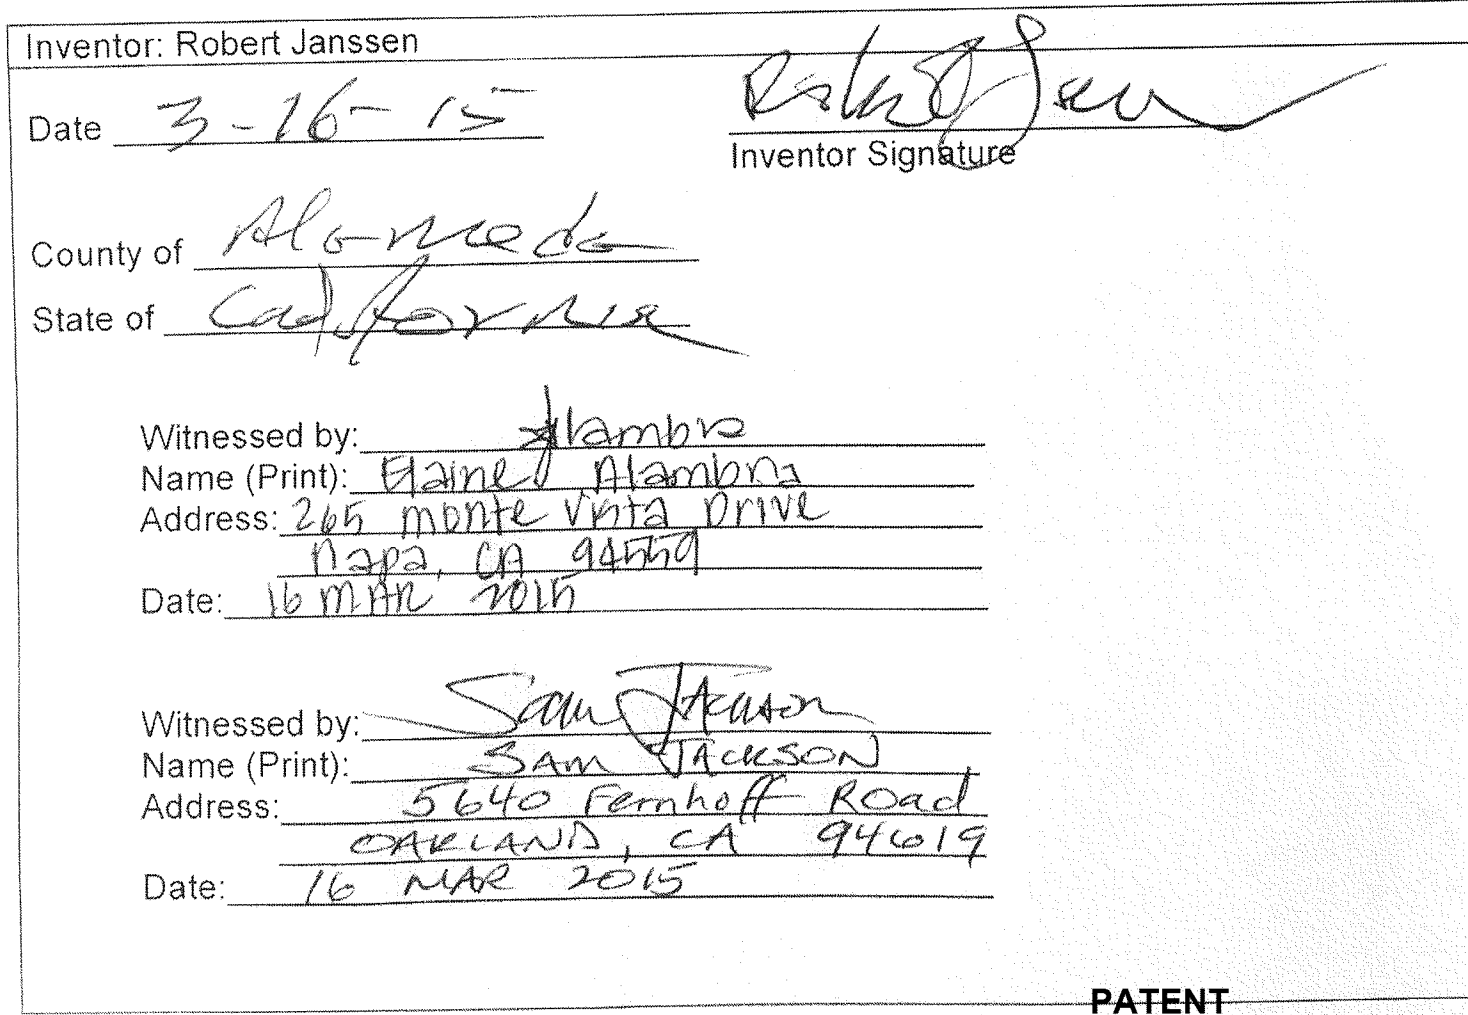 Inventor: Robert Janssen
Date 3-16-15
Inventor Signature
County of Alameda
State of California
Witnessed by: Alambra
Name (Print): Elaine Alambra
Address: 265 Monte Vista Drive
Napa, CA 94559
Date: 16 MAR 2015
Witnessed by: Sam Jackson
Name (Print): SAM JACKSON
Address: 5640 Fernhoff Road
OAKLAND, CA 94619
Date: 16 MAR 2015
PATENT